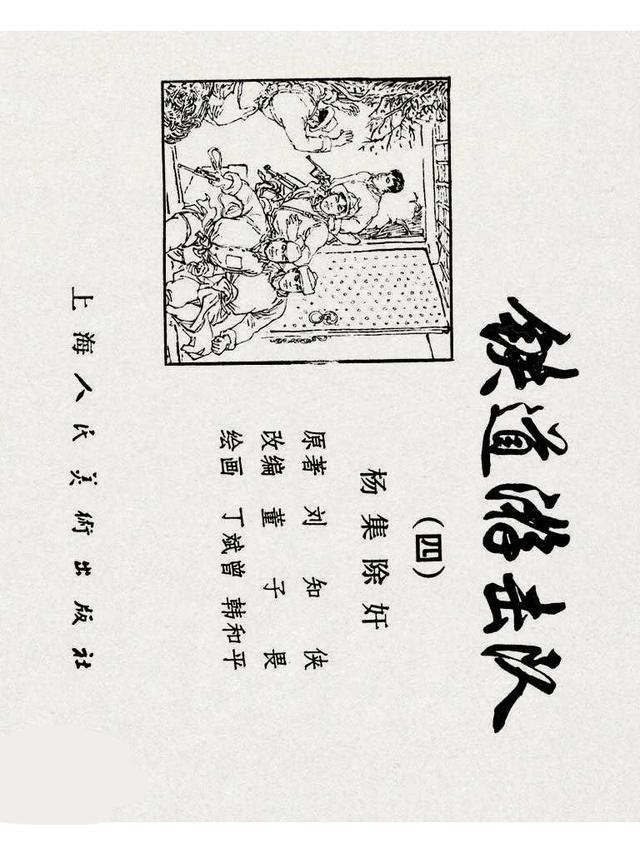 铁道游击队
（四）
杨集除奸
原著 刘知侠
改编 董子畏
绘画 丁斌曾 韩和平
上海人民美術出版社